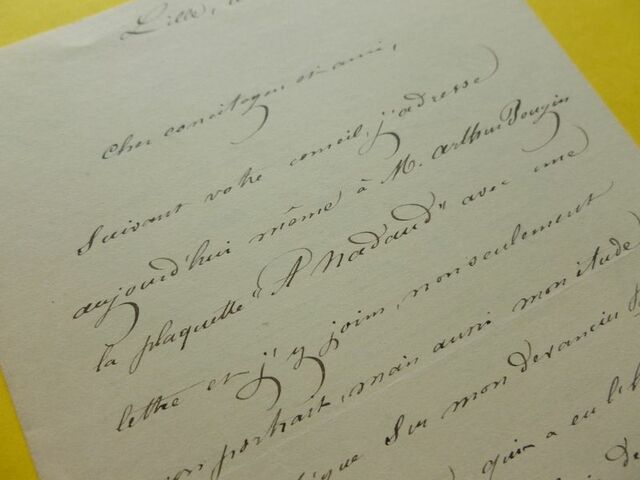 Lille,
Cher concitoyen et ami,
Suivant votre conseil, j'adresse
aujourd'hui même à M. Arthur Pougin
la plaquette "A Nadaud" avec une
lettre et j'y joins, non seulement
mon portrait, mais aussi mon étude
sur mon devancier
qui a eu